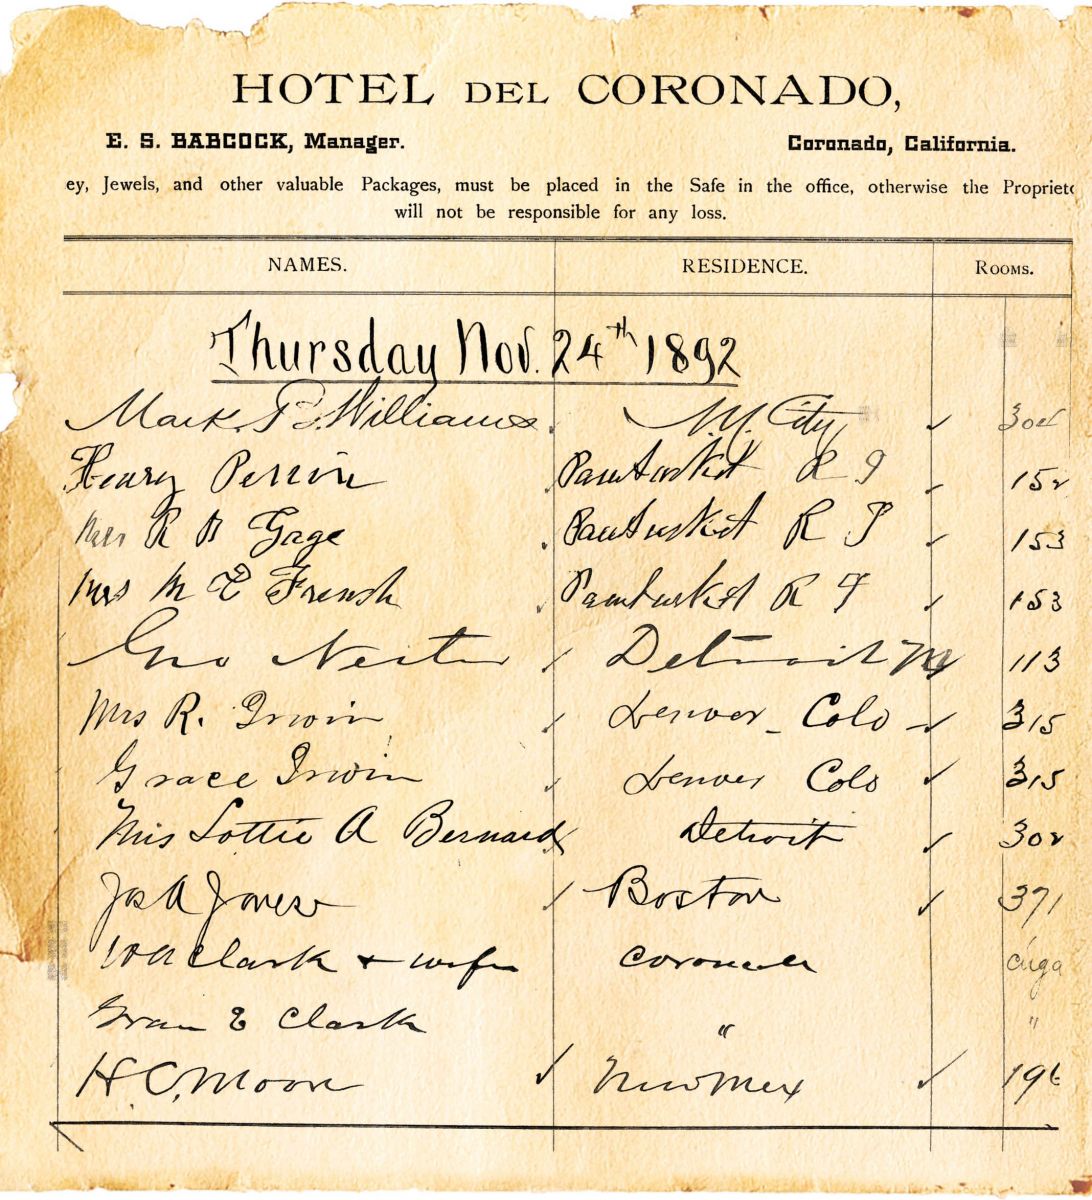 HOTEL DEL CORONADO,
E. S. BABCOCK, Manager. Coronado, California.
ey, Jewels, and other valuable Packages, must be placed in the Safe in the office, otherwise the Propriet
will not be responsible for any loss.
NAMES. RESIDENCE. ROOMS.
Thursday Nov. 24th 1892
Mark P. Williams City 304
Henry Perrin Pawtucket R I 152
Mrs R Gage Pawtucket R I 153
Mrs M E French Pawtucket R I 153
Geo Nester Detroit M 113
Mrs R. Irwin Denver - Colo - 315
Grace Irwin Denver Colo 315
Mrs Lottie A Bernard Detroit 302
Jos A Jones Boston 371
W A Clark + wife Coronado
E Clark "  "
H. C. Moore New Mex 196